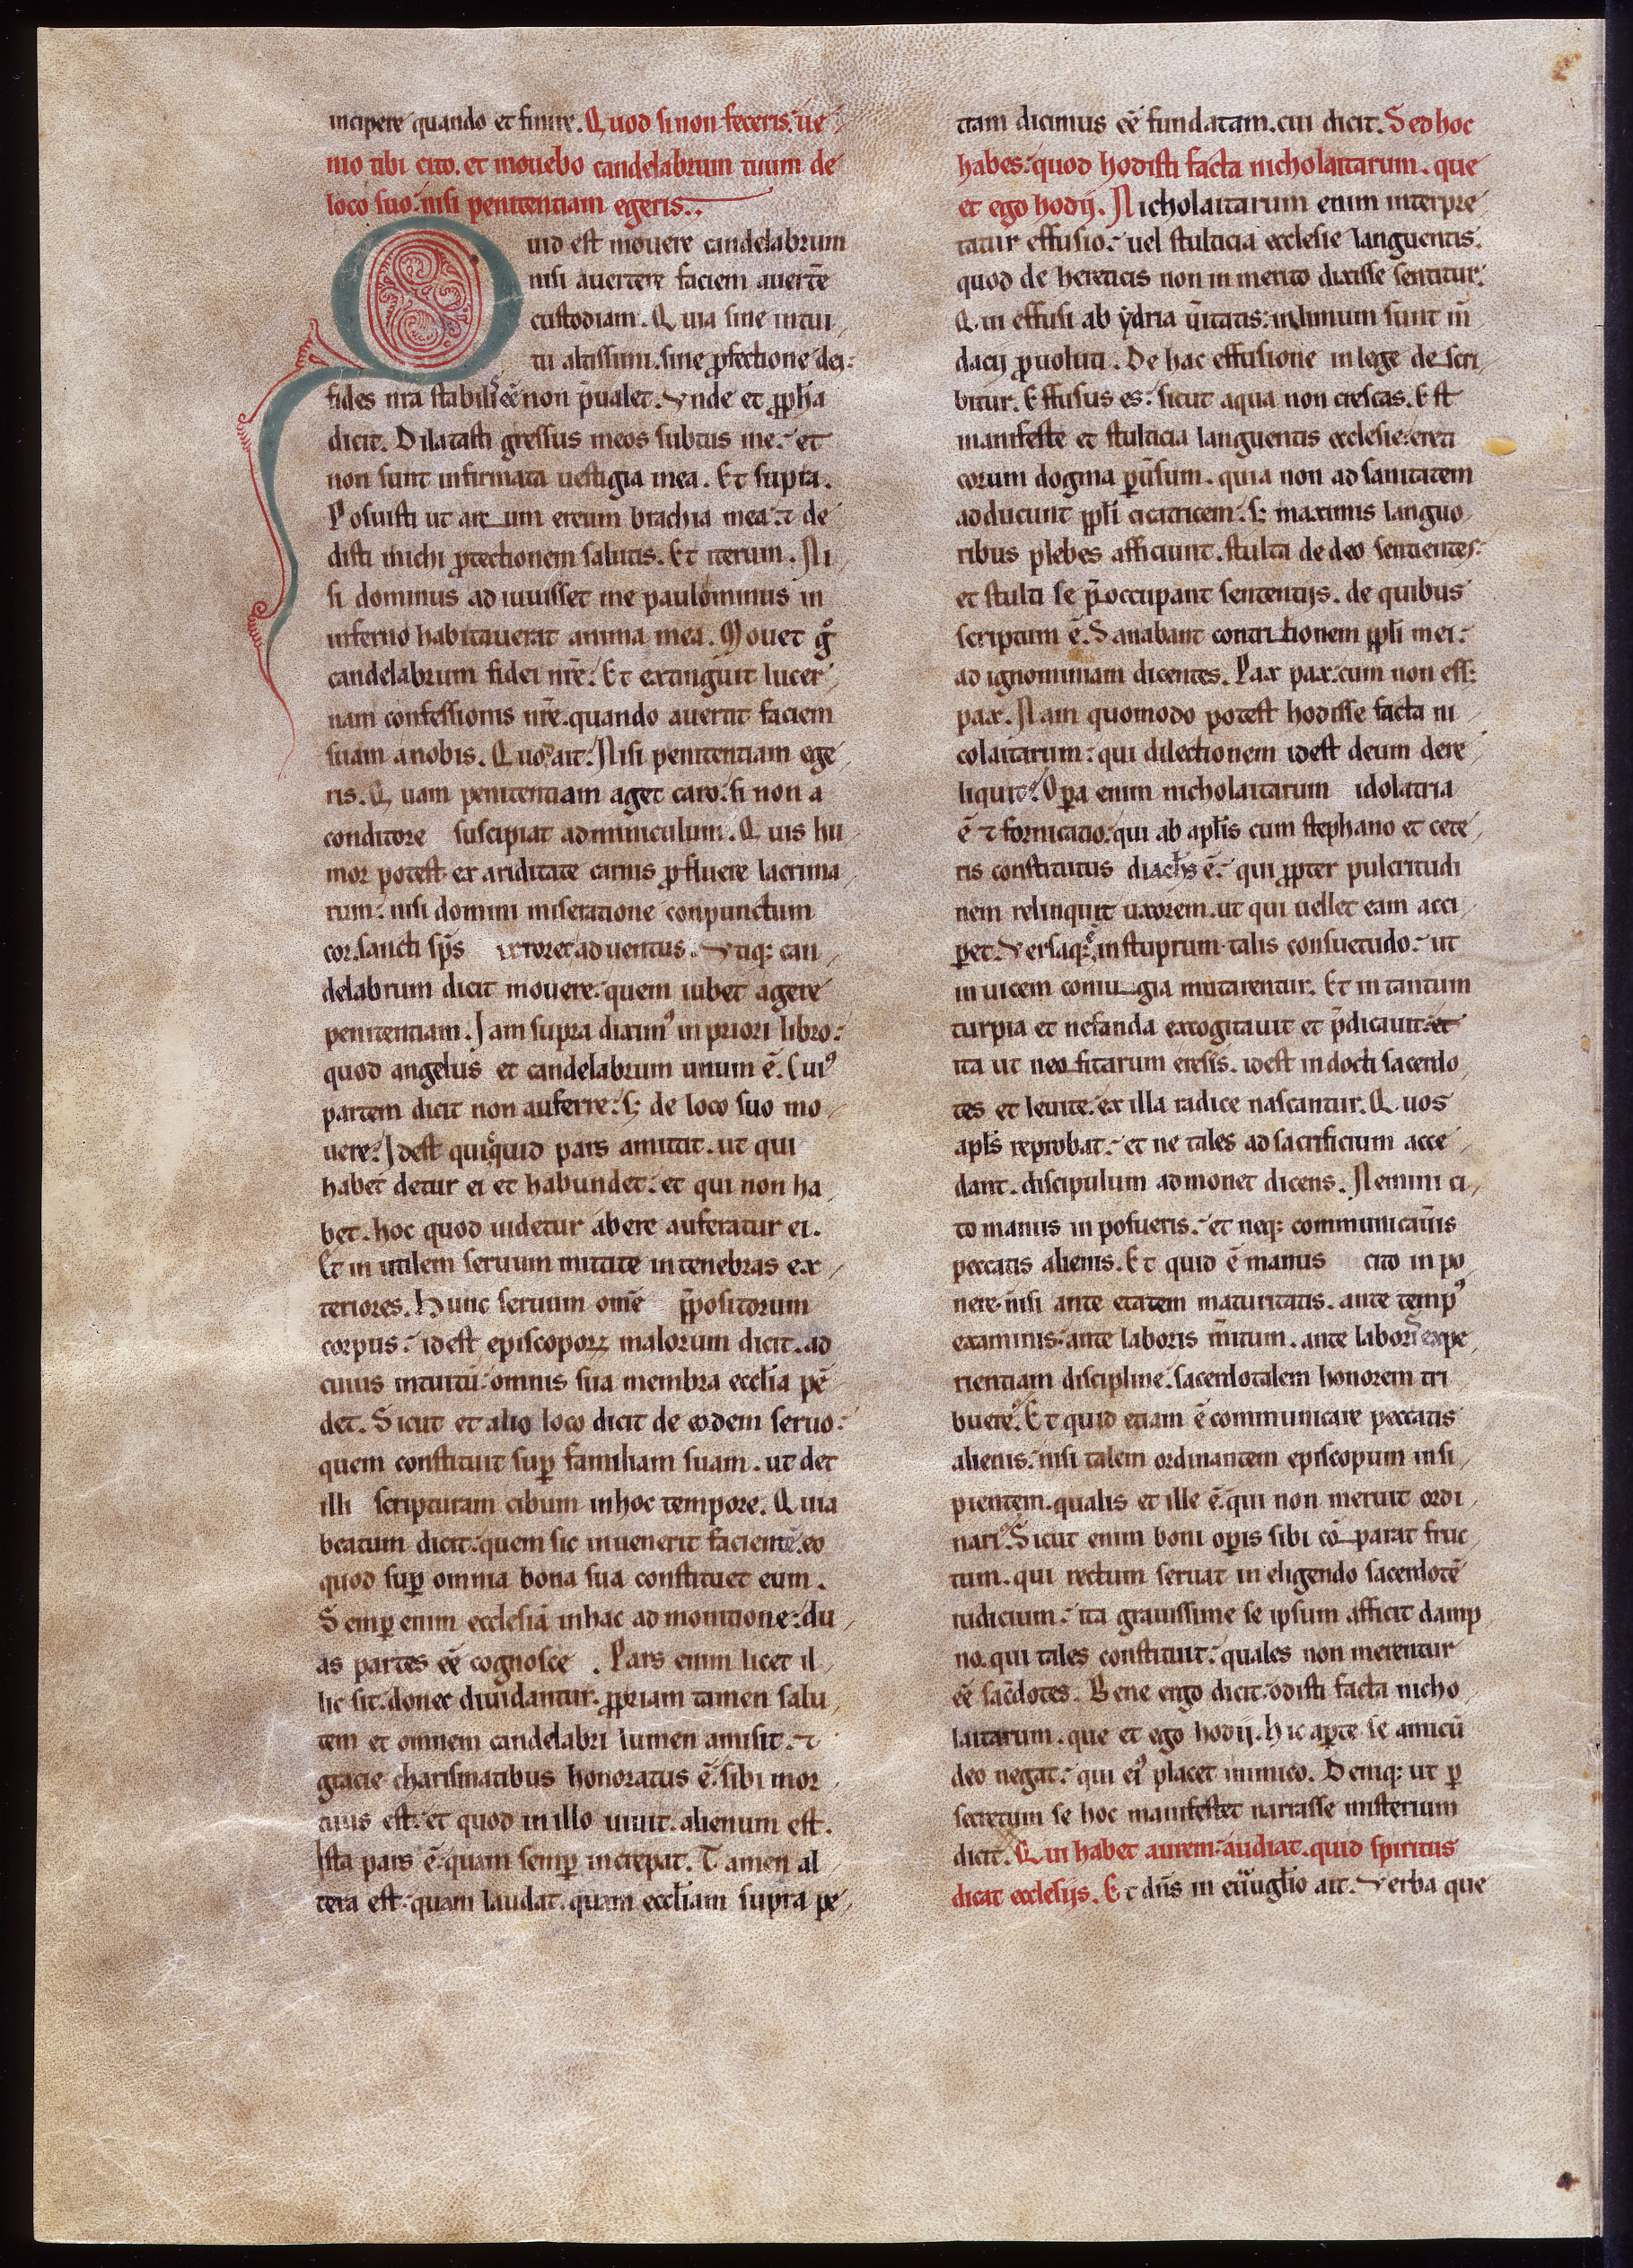 incipere quando et finire. Quod si non feceris: ue
nio tibi cito. et mouebo candelabrum tuum de
loco suo: nisi penitentiam egeris.
Quid est mouere candelabrum
nisi auertere faciem auertē
custodiam. Quia sine intui
tu altissimi. sine ꝓfectione dei:
fides nr̄a stabilis eē non p̄ualet. Vnde et ꝓph̄a
dicit. Dilatasti gressus meos subtus me: et
non sunt infirmata uestigia mea. Et supra.
Posuisti ut arcum ereum brachia mea: ⁊ de
disti michi ꝓtectionem salutis. Et iterum. Ni
si dominus adiuuisset me paulominus in
inferno habitauerat anima mea. Mouet gͦ
candelabrum fidei nr̄e: Et extinguit lucer
nam confessionis nr̄e. quando auertit faciem
suam a nobis. Quod ait: Nisi penitentiam ege
ris. Quam penitentiam aget caro: si non a
conditore suscipiat adminiculum. Quis hu
mor potest ex ariditate carnis ꝓfluere lacrima
rum: nisi domini miseratione conpunctum
cor. sancti sp̄s adventus. Vtiq; can
delabrum dicit mouere: quem iubet agere
penitentiam. Iam supra diximꝰ in priori libro:
quod angelus et candelabrum unum ē. Cuiꝰ
partem dicit non auferre: s; de loco suo mo
uere: Idest quicquid pars amittit. ut qui
habet detur ei et habundet: et qui non ha
bet. hoc quod uidetur abere auferatur ei.
Et inutilem seruum mittite in tenebras ex
teriores. Hunc seruum omē p̄positorum
corpus: idest episcoporꝝ malorum dicit. ad
cuius intuitū: omnis sua membra eccl̄ia pē
det. Sicut et alio loco dicit de eodem seruo:
quem constituit suꝑ familiam suam. ut det
illi scripturam cibum in hoc tempore. Quia
beatum dicit: quem sic inuenerit facientē. eo
quod suꝑ omnia bona sua constituet eum.
Semꝑ enim ecclesiā in hac admonitione: du
as partes eē cognosce. Pars enim licet il
lic sit. donec diuidantur. ꝓpriam tamen salu
tem et omnem candelabri lumen amisit. ⁊
gracie charismatibus honoratus ē. sibi mor
tuus est: et quod in illo uiuit. alienum est.
Ista pars ē: quam semꝑ increpat. Tamen al
tera est: quam laudat. quam eccl̄iam supra pe
tram dicimus eē fundatam. cui dicit. Sed hoc
habes: quod hodisti facta nicholaitarum. que
et ego hodij. Nicholaitarum enim interpre
tatur effusio: uel stulticia ecclesie languentis:
quod de hereticis non inmerito dixisse sentitur:
Qui effusi ab ydria ūitatis: in limum sunt m̄
dacij ꝓuoluti. De hac effusione in lege descri
bitur. Effusus es: sicut aqua non crescas. Est
manifeste et stulticia languentis ecclesie: ereti
corum dogma ꝑūsum. quia non ad sanitatem
adducunt ppl̄i cicatricem: s; maximis languo
ribus plebes afficiunt. stulta de deo sentientes:
et stulti se p̄occupant sententijs. de quibus
scriptum ē. Sanabant contritionem ppl̄i mei:
ad ignominiam dicentes. Pax pax: cum non ess;
pax. Nam quomodo potest hodisse facta ni
colaitarum: qui dilectionem idest deum dere
liquit? Oꝑa enim nicholaitarum idolatria
ē ⁊ fornicatio: qui ab apl̄is cum stephano et cete
ris constitutus diach̄s ē: qui ꝓpter pulcritudi
nem relinquit uxorem. ut qui uellet eam acci
ꝑet. Versaq; ē in stuprum talis consuetudo: ut
inuicem coniugia mutarentur. Et in tantum
turpia et nefanda excogitauit et p̄dicauit: et
ita ut neofitarum eresis. idest indocti sacerdo
tes et leuite. ex illa radice nascantur. Quos
apl̄s reprobat: et ne tales ad sacrificium acce
dant. discipulum admonet dicens. Nemini ci
to manus inposueris: et neq; communicaūis
peccatis alienis. Et quid ē manus cito inpo
nere. nisi ante etatem maturitatis. ante tempꝰ
examinis: ante laboris m̄itum. ante laboris expe
rientiam discipline: sacerdotalem honorem tri
buere? Et quid etiam ē communicare peccatis
alienis: nisi talem ordinantem episcopum insi
pientem. qualis et ille ē. qui non meruit ordi
nari? Sicut enim boni oꝑis sibi cōparat fruc
tum. qui rectum seruat in eligendo sacerdotē
iudicium: ita grauissime se ipsum afficit damp
no. qui tales constituit: quales non merentur
eē sac̄dotes. Bene ergo dicit: odisti facta nicho
laitarum. que et ego hodij. Hic aꝑte se amicū
deo negat: qui eiꝰ placet inimico. Deniq; ut ꝑ
secretum se hoc manifestet narrasse misterium
dicit. Qui habet aurem: audiat. quid spiritus
dicat ecclesijs. Et dn̄s in euuągl̄io ait. Verba que